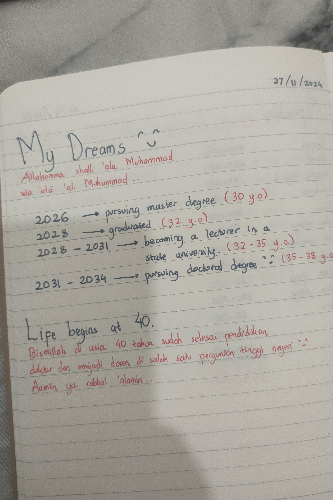 27/11/2024
My Dreams
Allahumma shalli 'ala Muhammad
wa ala 'ali Muhammad...
2026 → pursuing master degree (30 y.o)
2028 → graduated (32 y.o)
2028 - 2031 → becoming a lecturer in a
state university. (32-35 y.o)
2031 - 2034 → pursuing doctoral degree (35-38 y.o
Life begins at 40.
Bismillah di usia 40 tahun sudah selesai pendidikan
doktor dan menjadi dosen di salah satu perguruan tinggi negeri
Aamiin ya rabbal 'alamin...